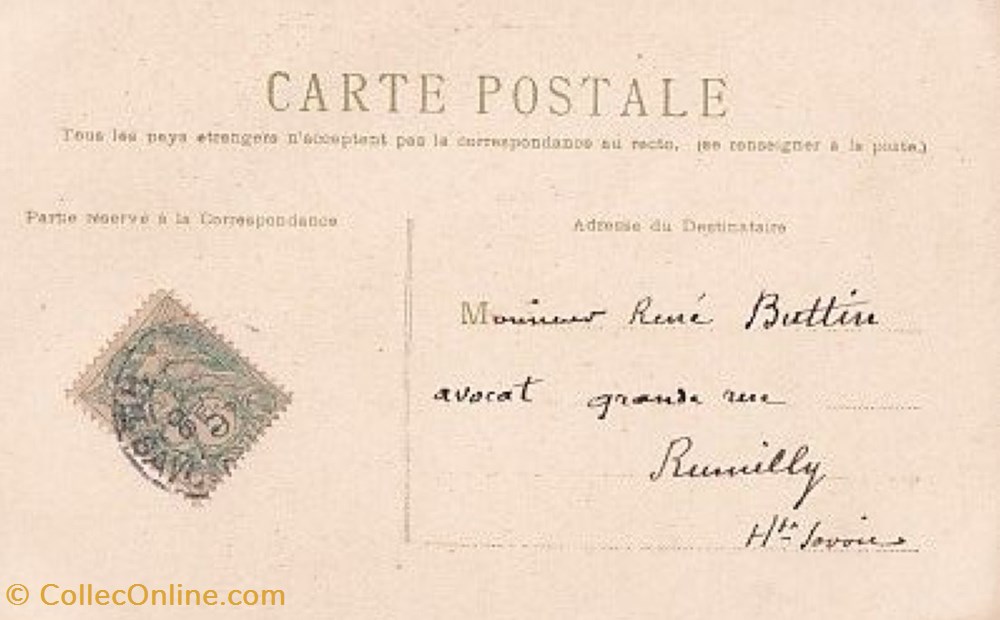 CARTE POSTALE
Tous les pays étrangers n'acceptent pas la correspondance au recto. (se renseigner à la poste.)
Partie réservé à la Correspondance
Adresse du Destinataire
Monsieur René Buttin
avocat grande rue
Rumilly
Hte Savoie
5
© CollecOnline.com